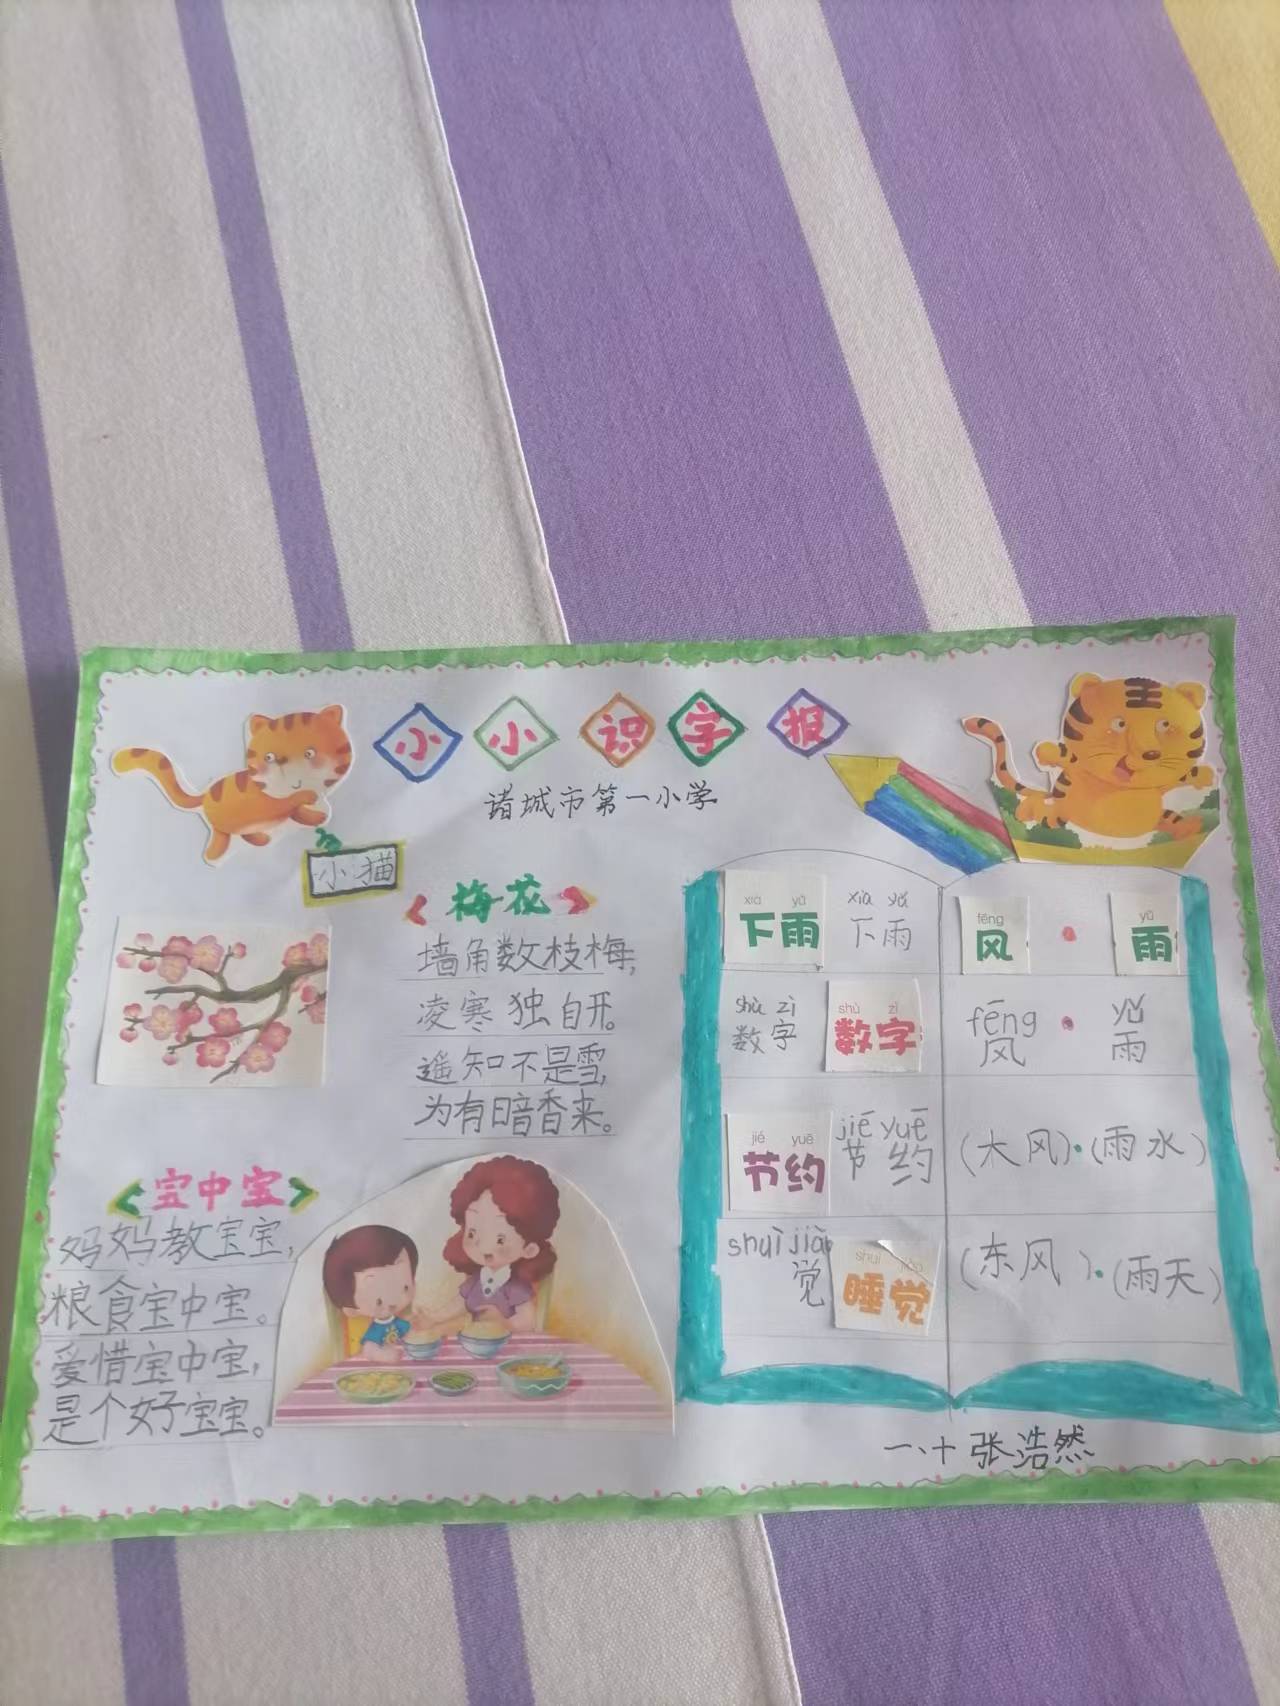 小小识字报
诸城市第一小学
小猫
《梅花》
墙角数枝梅,
凌寒独自开。
遥知不是雪,
为有暗香来。
《宝中宝》
妈妈教宝宝,
粮食宝中宝。
爱惜宝中宝,
是个好宝宝。
xià yǔ xià yǔ
下雨 下雨
shù zì shù zì
数字 数字
jié yuē jié yuē
节约 节约
shuì jiào shuì jiào
觉 睡觉
fēng yǔ
风·雨
fēng yǔ
风·雨
(大风)·(雨水)
(东风)·(雨天)
一、十 张浩然